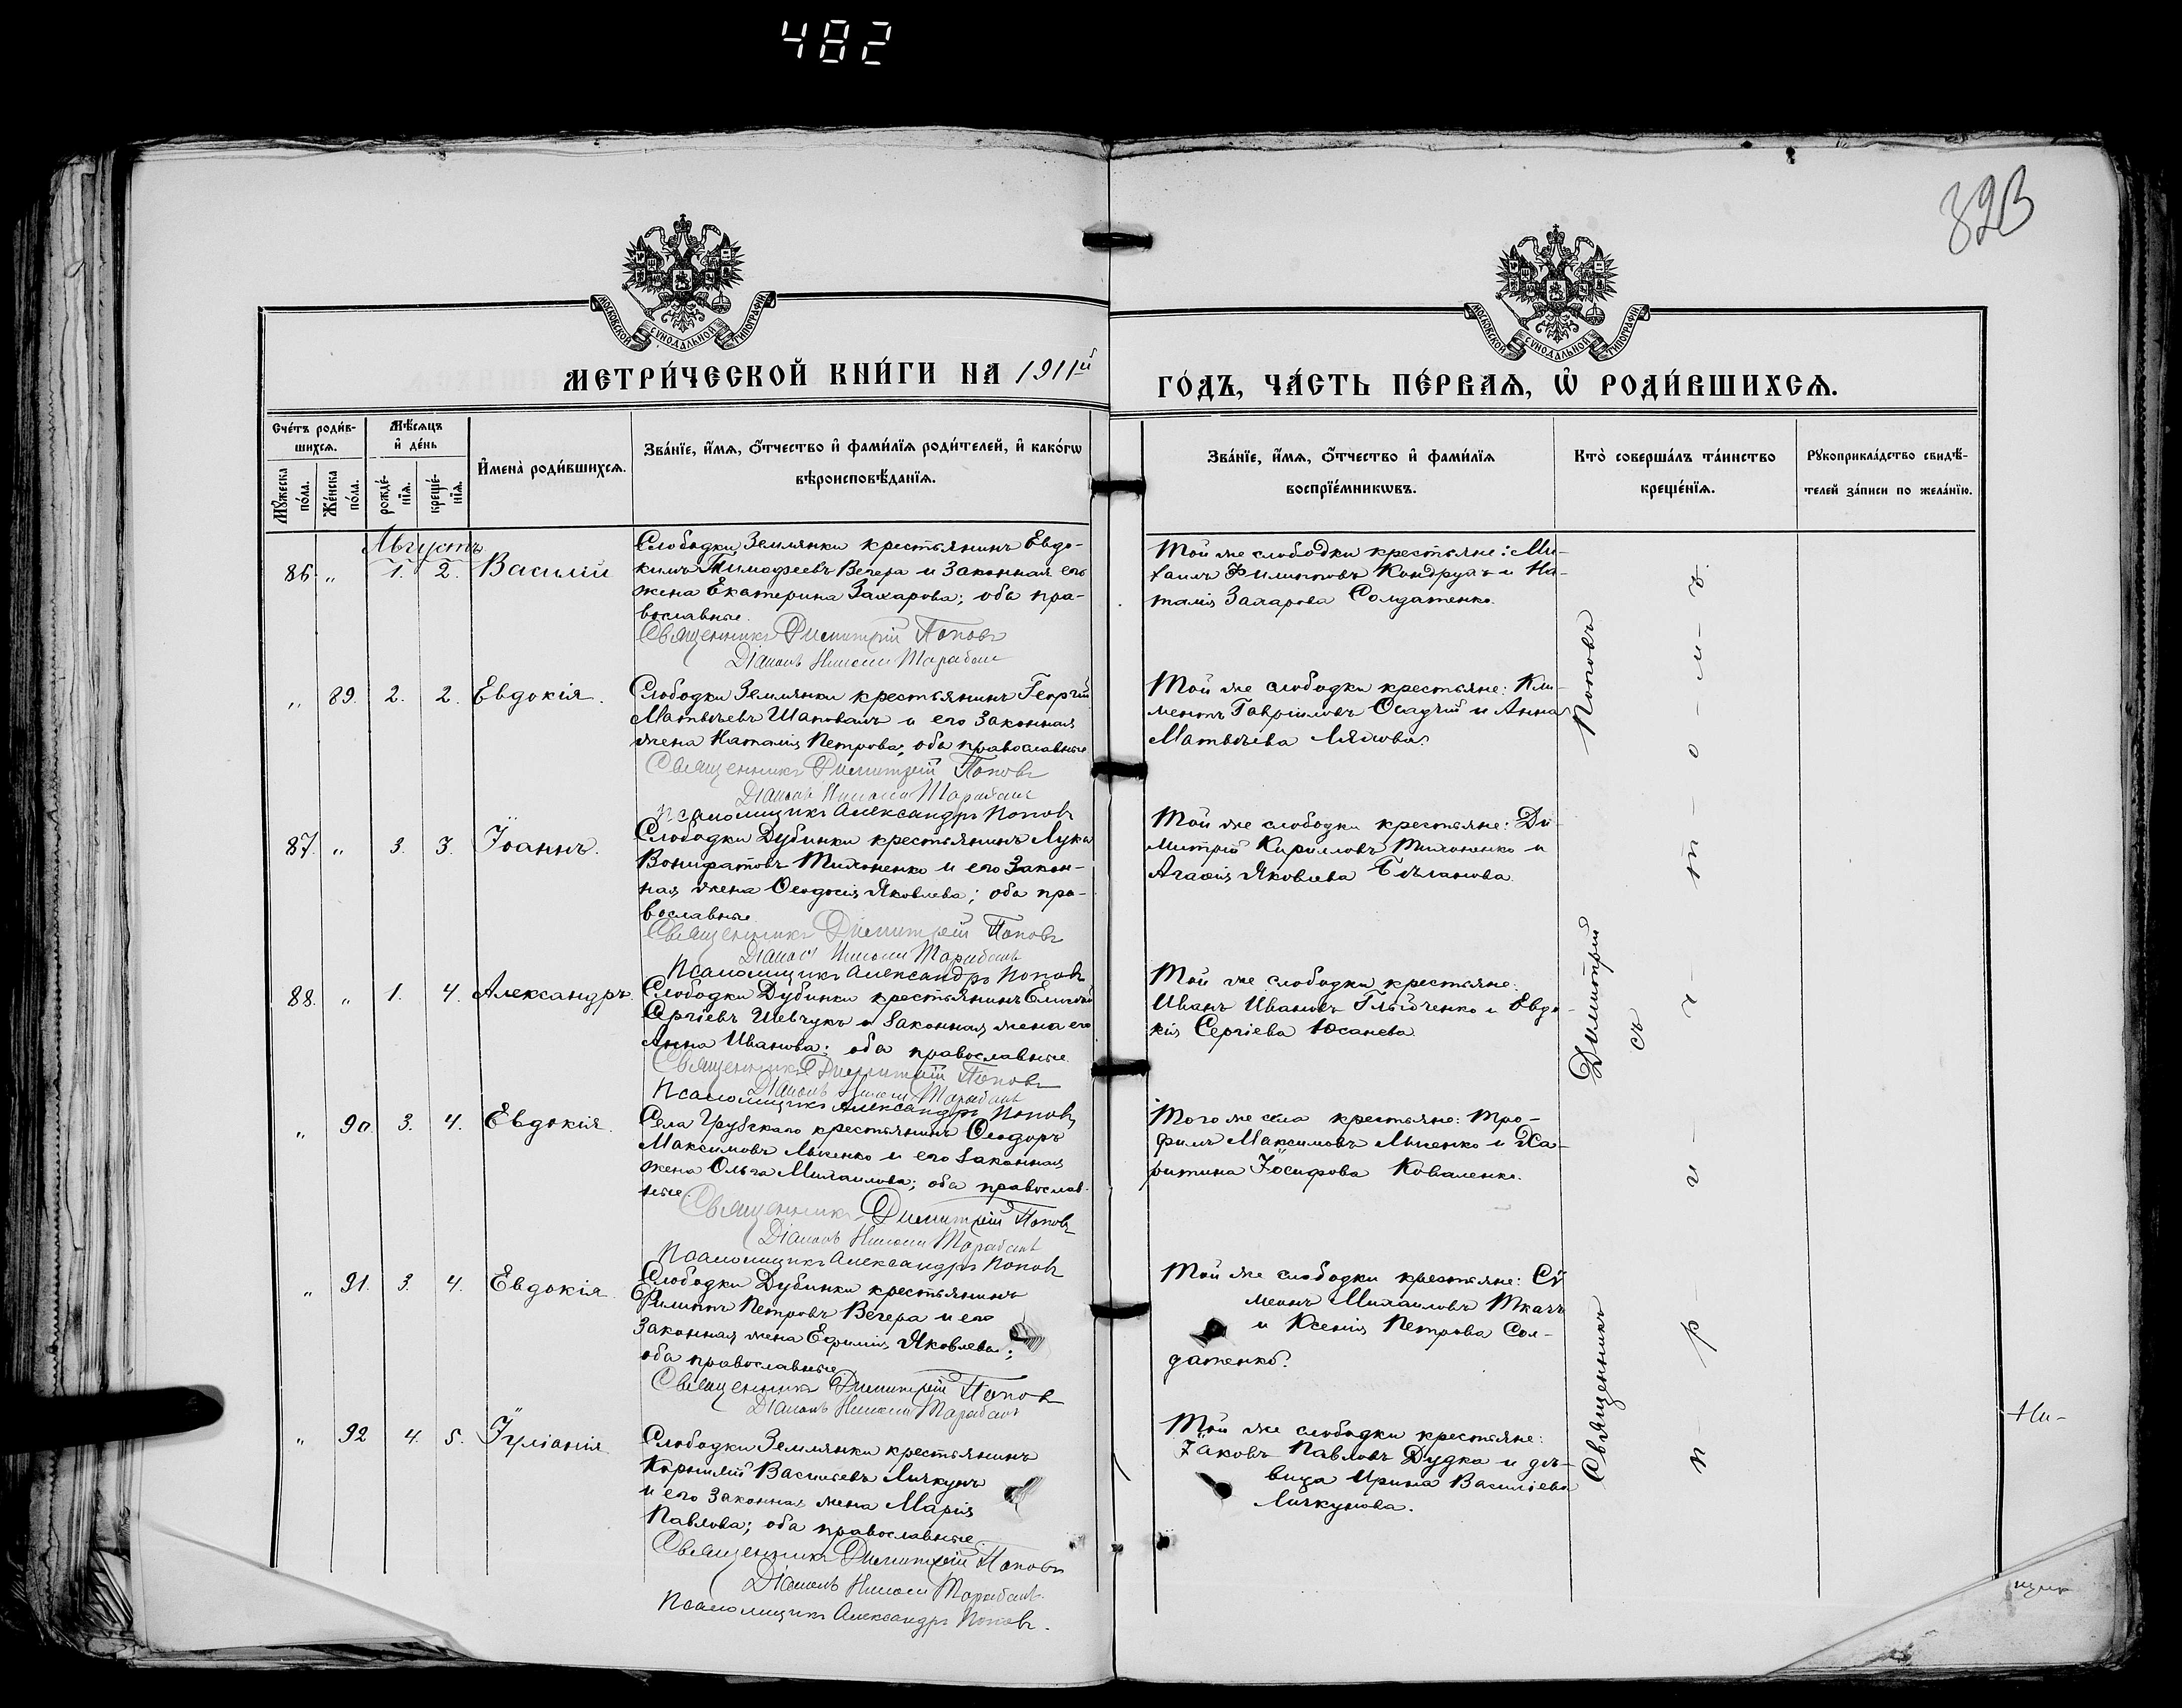 482
323
МОСКОВСКОЙ СУНОДАЛЬНОЙ ТИПОГРАФІИ
МОСКОВСКОЙ СУНОДАЛЬНОЙ ТИПОГРАФІИ
МЕТРИ́ЧЕСКОЙ КНИ́ГИ НА 1911й
ГО́ДЪ, ЧА́СТЬ ПЕ́РВАѦ, Ѡ҆ РОДИ́ВШИХСѦ.
Сче́тъ роди́в-
шихсѧ.
Мѣ́сѧцъ
и҆ де́нь
Мꙋ́жеска по́ла.
Же́нска по́ла.
рожде́-нїѧ.
креще́-нїѧ.
И҆мена̀ роди́вшихсѧ.
Зва́нїе, и҆́мѧ, ѻ҆́тчество и҆ фами́лїѧ роди́телей, и҆ како́гѡ
вѣроисповѣ́данїѧ.
Зва́нїе, и҆́мѧ, ѻ҆́тчество и҆ фами́лїѧ
воспрїе́мникѡвъ.
Кто̀ соверша́лъ та́инство
креще́нїѧ.
Рꙋкоприкла́дство свидѣ́-
телей за́писи по жела́нїю.
Августъ
86. „ 1. 2. Василій
Слободки Землянки крестьянинъ Евдо-
кимъ Тимофеевъ Вечера и законная его
жена Екатерина Захарова; оба пра-
вославные.
Священникъ Димитрій Поповъ
Діаконъ
Той же слободки крестьяне: Ми-
хаилъ Филипповъ Кондрухъ и На-
талія Захарова Солдатенко.
„ 89. 2. 2. Евдокія.
Слободки Землянки крестьянинъ Георгій
Матвѣевъ Шаповалъ и его законная
жена Наталія Петрова; оба православные.
Священникъ Димитрій Поповъ
Діаконъ
Псаломщикъ Александръ Поповъ
Той же слободки крестьяне: Кли-
ментъ Гавріиловъ Осадчій и Анна
Матвѣева
87. „ 3. 3. Іоаннъ.
Слободки Дубинки крестьянинъ Лука
Вонифатовъ Тихоненко и его закон-
ная жена Ѳеодосія Яковлева; оба пра-
вославные.
Священникъ Димитрій Поповъ
Діаконъ
Псаломщикъ Александръ Поповъ
Той же слободки крестьяне: Ди-
митрій Кирилловъ Тихоненко и
Агаѳія Яковлева
88. „ 1. 4. Александръ.
Слободки Дубинки крестьянинъ
Сергіевъ Шевчукъ и законная жена его
Анна Иванова; оба православные.
Священникъ Димитрій Поповъ
Діаконъ
Псаломщикъ Александръ Поповъ
Той же слободки крестьяне:
Иванъ Ивановъ и Евдо-
кія Сергіева
„ 90. 3. 4. Евдокія.
Села Грубскаго крестьянинъ Ѳеодоръ
Максимовъ и его законная
жена Ольга Михаилова; оба православ-
ные.
Священникъ Димитрій Поповъ
Діаконъ
Псаломщикъ Александръ Поповъ
Того же села крестьяне: Тро-
фимъ Максимовъ и Ха-
ритина Іосифова Коваленко.
„ 91. 3. 4. Евдокія
Слободки Дубинки крестьянинъ
Филиппъ Петровъ Вечера и его
законная жена Ефимія Яковлева;
оба православные.
Священникъ Димитрій Поповъ
Діаконъ
Той же слободки крестьяне: Сѵ-
меонъ Михаиловъ Ткачъ
и Ксенія Петрова Сол-
датенко.
„ 92 4. 5. Іуліанія
Слободки Землянки крестьянинъ
Корнилій Васильевъ Личкунъ
и его законная жена Марія
Павлова; оба православные.
Священникъ Димитрій Поповъ
Діаконъ
Псаломщикъ Александръ Поповъ.
Той же слободки крестьяне:
Іаковъ Павловъ Дудка и дѣ-
вица Ирина Васильева
Личкунова.
Священникъ Димитрій Поповъ
съ
п - р - и - ч - т - о - м - ъ.
щик